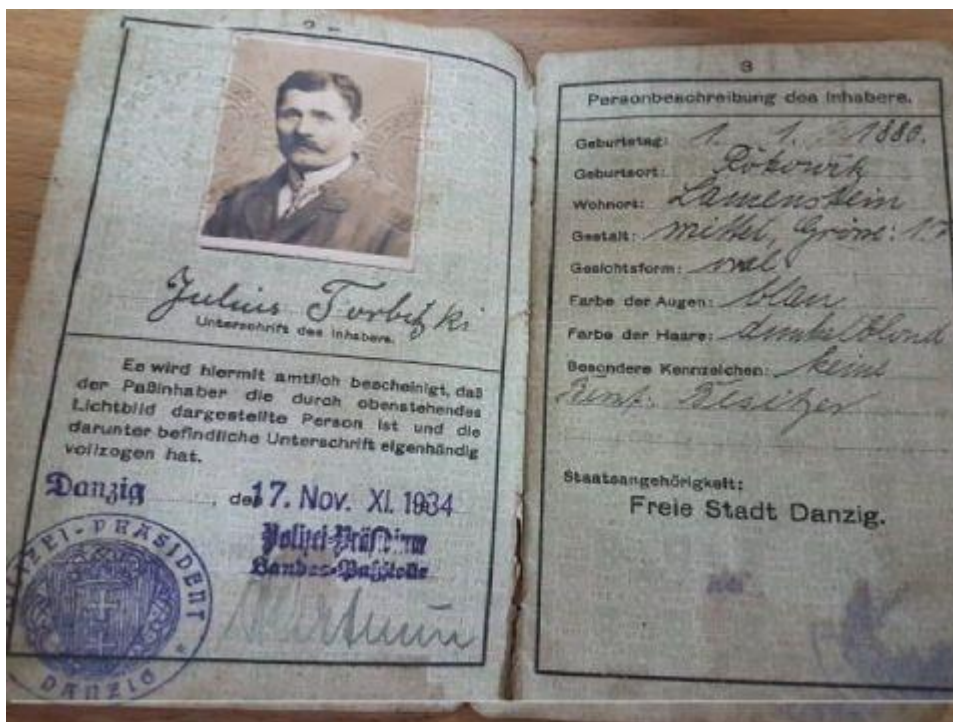 2
Julius Torbitzki
Unterschrift des Inhabers.
Es wird hiermit amtlich bescheinigt, daß
der Paßinhaber die durch obenstehendes
Lichtbild dargestellte Person ist und die
darunter befindliche Unterschrift eigenhändig
vollzogen hat.
Danzig, den 17. Nov. XI. 1934
Polizei-Präsidium
Landes-Paßstelle
POLIZEI-PRÄSIDENT
DANZIG
3
Personbeschreibung des Inhabers.
Geburtstag: 1. 1. 1880.
Geburtsort:
Wohnort: Lamenstein
Gestalt: mittel, Grösse: 1.7
Gesichtsform: oval
Farbe der Augen: blau
Farbe der Haare: dunkelblond
Besondere Kennzeichen: keine
Besitzer
Staatsangehörigkeit:
Freie Stadt Danzig.